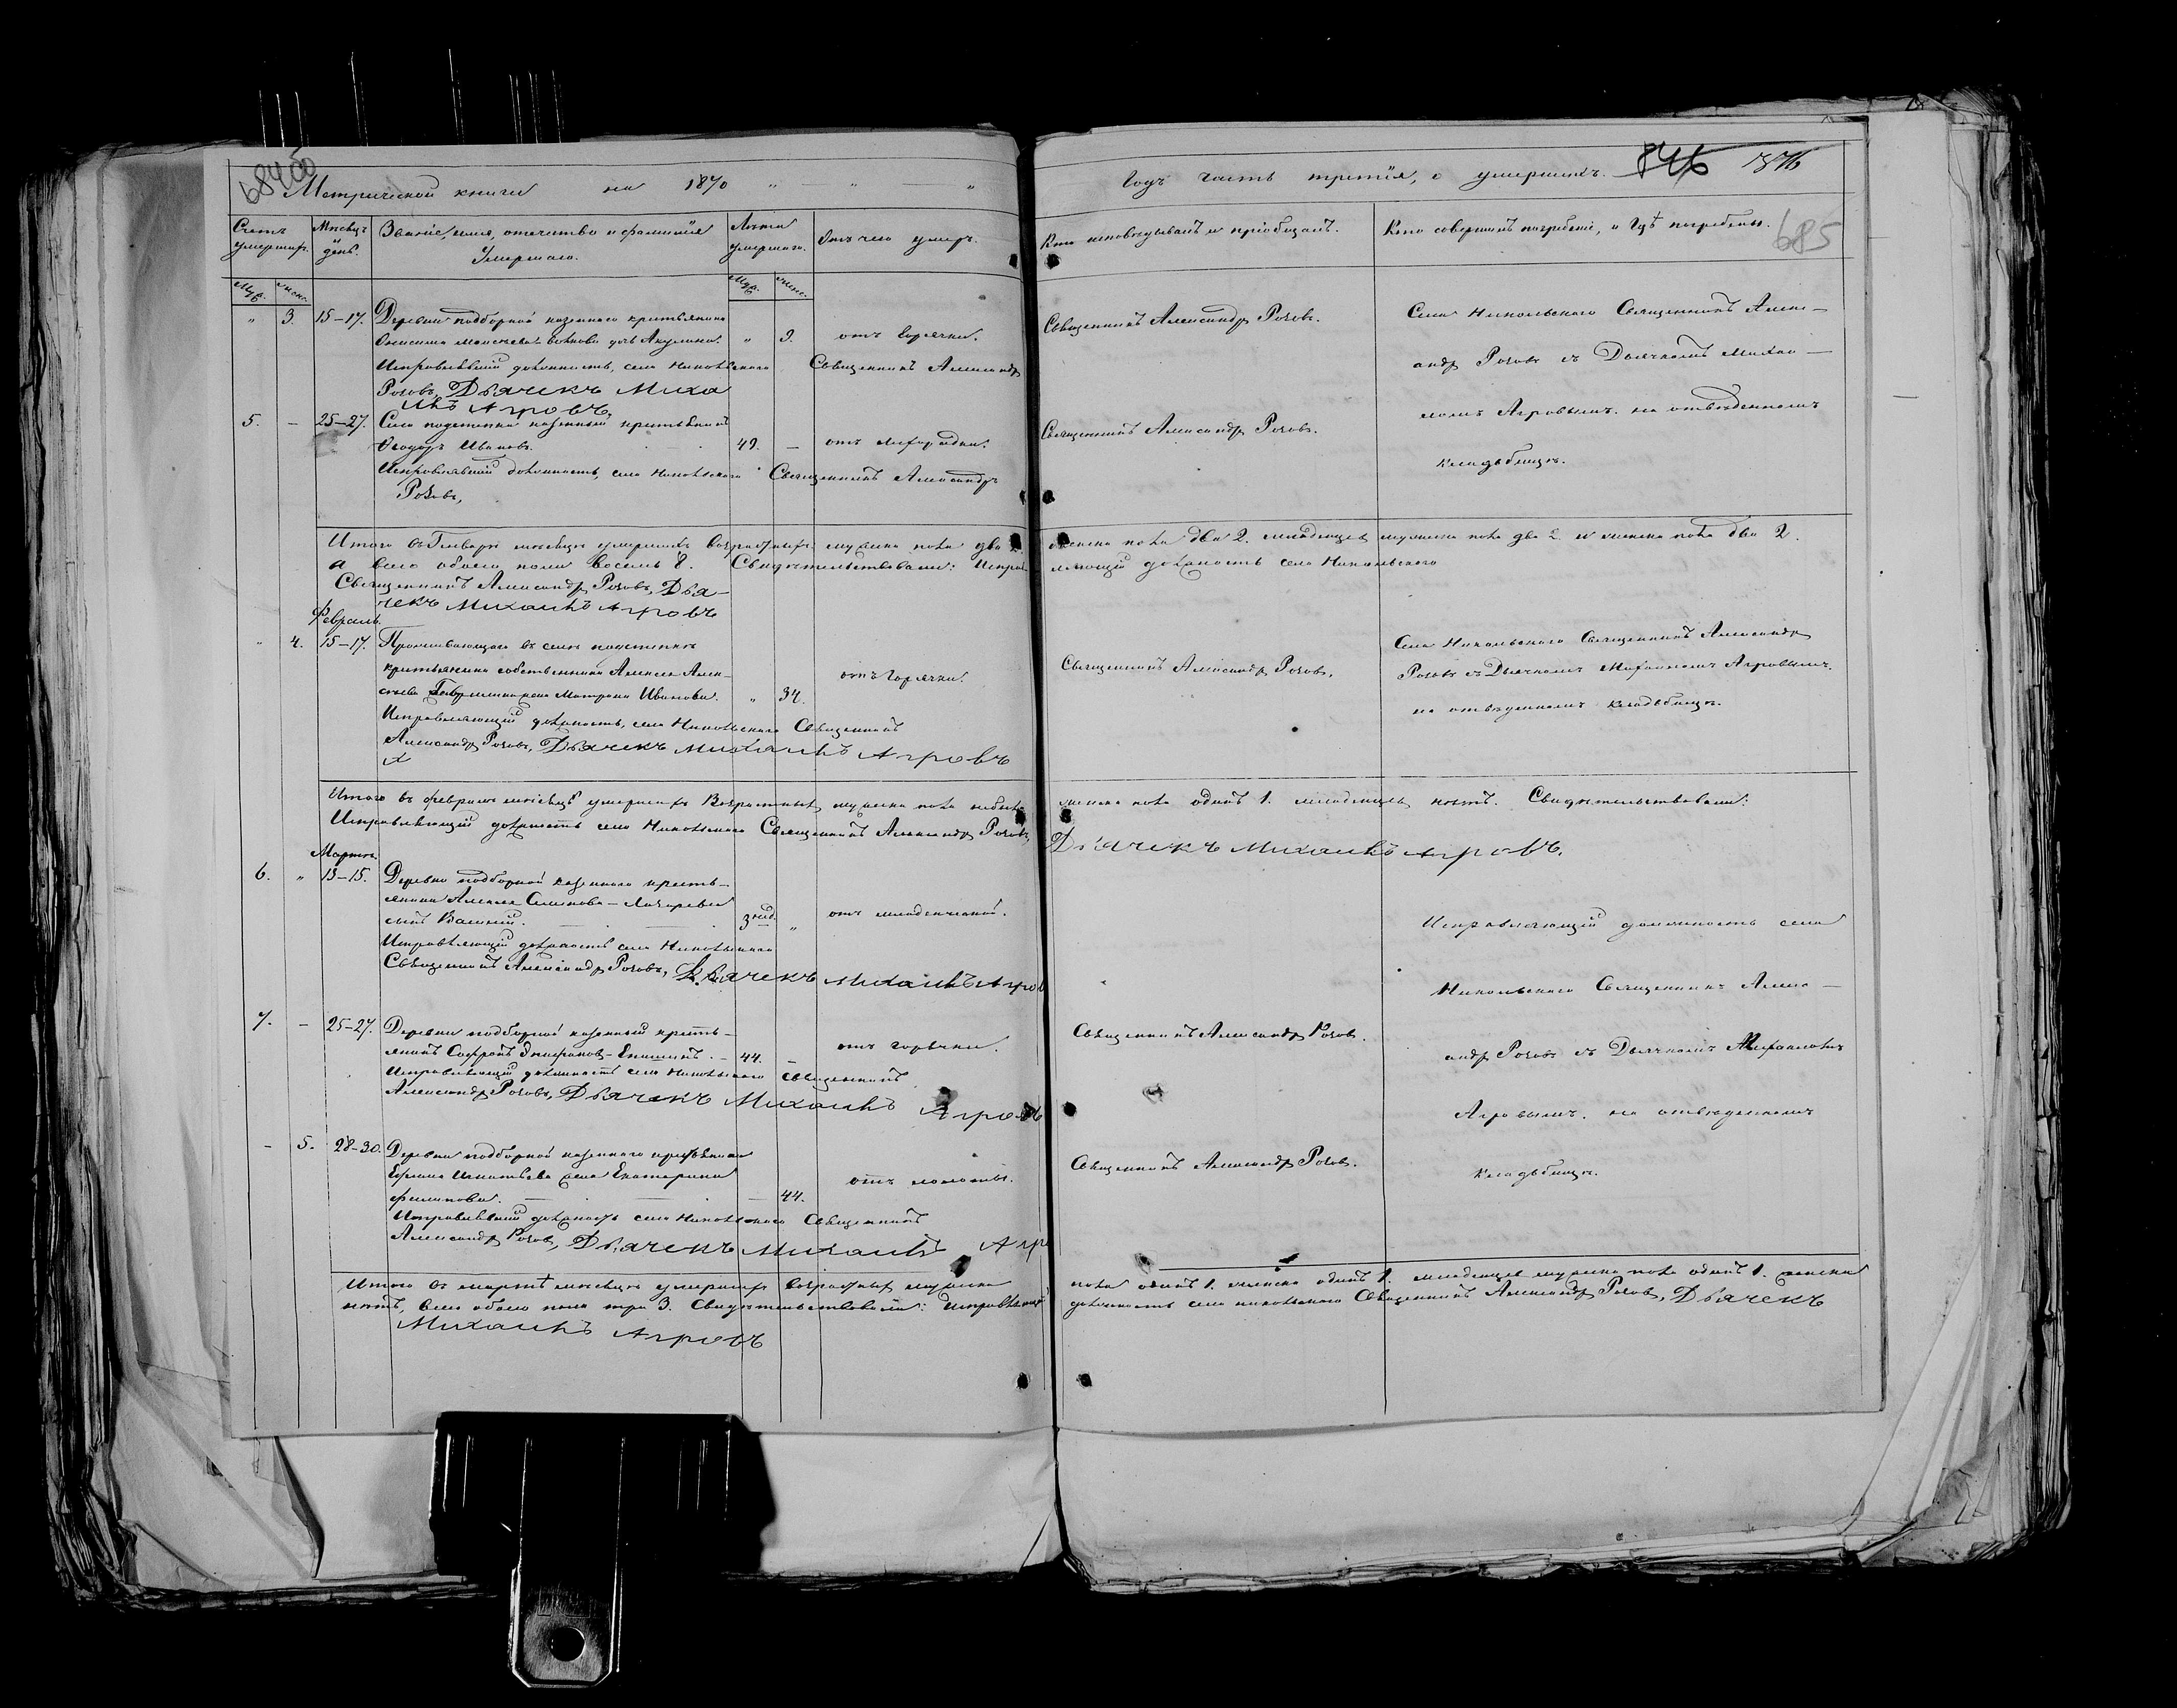 Метрической книги на 1870
Счетъ умершихъ.
Мѣсяцъ и день.
Званіе, имя, отчество и фамилія Умершаго.
Лѣта умершаго.
Отъ чего умеръ.
Муж. Женс. Муж. Женс.
" 3. 15-17. Деревни Подборной казеннаго крестьянина
дочь Акулина. " 9. отъ горячки.
Исправлявшій должность, села Никольскаго Священникъ Александръ
Роховъ, Дьячекъ Миха
илъ Агровъ,
5. - 25-27. Села казенный крестьянинъ
Ѳеодоръ Ивановъ. 49. - отъ лихорадки.
Исправлявшій должность, села Никольскаго Священникъ Александръ
Роховъ,
Итого въ Генварѣ мѣсяцѣ умершихъ возрастныхъ мужеска пола два
а всего обоего пола восемь 8. Свидѣтельствовали:
Священникъ Александръ Роховъ, Дья-
чекъ Михаилъ Агровъ
Февраль.
" 4. 15-17. Проживающаго въ селѣ
крестьянина собственника Алексѣя Алек-
сѣева жена Матрона Иванова. " 34. отъ горячки.
Исправляющій должность, села Никольскаго Священникъ
Александръ Роховъ, Дьячекъ Михаилъ Агровъ
Итого въ февралѣ мѣсяцѣ умершихъ Возрастныхъ мужеска пола небыло
Исправляющій должность села Никольскаго Священникъ Александръ Роховъ,
Мартъ.
6. " 13-15. Деревни Подборной казеннаго кресть-
янина Алексѣя Семенова - Лазарева
сынъ Василій. 3 нед. " отъ младенческой.
Исправляющій должность села Никольскаго
Священникъ Александръ Роховъ, Дьячекъ Михаилъ Агров
7. - 25-27. Деревни Подборной казенный кресть-
янинъ Софронъ - 44. - отъ горячки.
Исправляющій должность села Никольскаго Священникъ
Александръ Роховъ, Дьячекъ Михаилъ Агровъ
- 5. 28-30. Деревни Подборной казеннаго крестьянина
Ефима Игнатьева жена Екатерина
Филипова. 44.
Исправлявшій должность села Никольскаго Священникъ
Александръ Роховъ, Дьячекъ Михаилъ Агр
Итого въ мартѣ мѣсяцѣ умершихъ возрастныхъ мужеска
нѣтъ, всего обоего пола три 3. Свидѣтельствовали:
Михаилъ Агровъ
Годъ часть третія, о умершихъ. 846 1876
685
Кто исповѣдывалъ и пріобщалъ.
Кто совершалъ погребеніе, и гдѣ погребены.
Священникъ Александръ Роховъ.
Села Никольскаго Священникъ Алекс-
андръ Роховъ съ Дьячкомъ Михаи-
ломъ Агровымъ. на отведенномъ
кладбищѣ.
Священникъ Александръ Роховъ.
женска пола два 2. младенцевъ мужеска пола два 2 и женска пола два 2.
должность села Никольскаго
Священникъ Александръ Роховъ.
Села Никольскаго Священникъ Александръ
Роховъ съ Дьячкомъ Михаиломъ Агровымъ.
на отведенномъ кладбищѣ.
женска пола одна 1. младенцевъ нѣтъ. Свидѣтельствовали:
Дьячекъ Михаилъ Агровъ.
Исправляющій должность села
Никольскаго Священникъ Алекс-
андръ Роховъ съ Дьячкомъ Михаиломъ
Агровымъ. на отведенномъ
кладбищѣ.
Священникъ Александръ Роховъ.
Священникъ Александръ Роховъ.
пола одинъ 1. женска одинъ 1. младенцевъ мужеска пола одинъ 1. женска
должность села Никольскаго Священникъ Александръ Роховъ, Дьячекъ